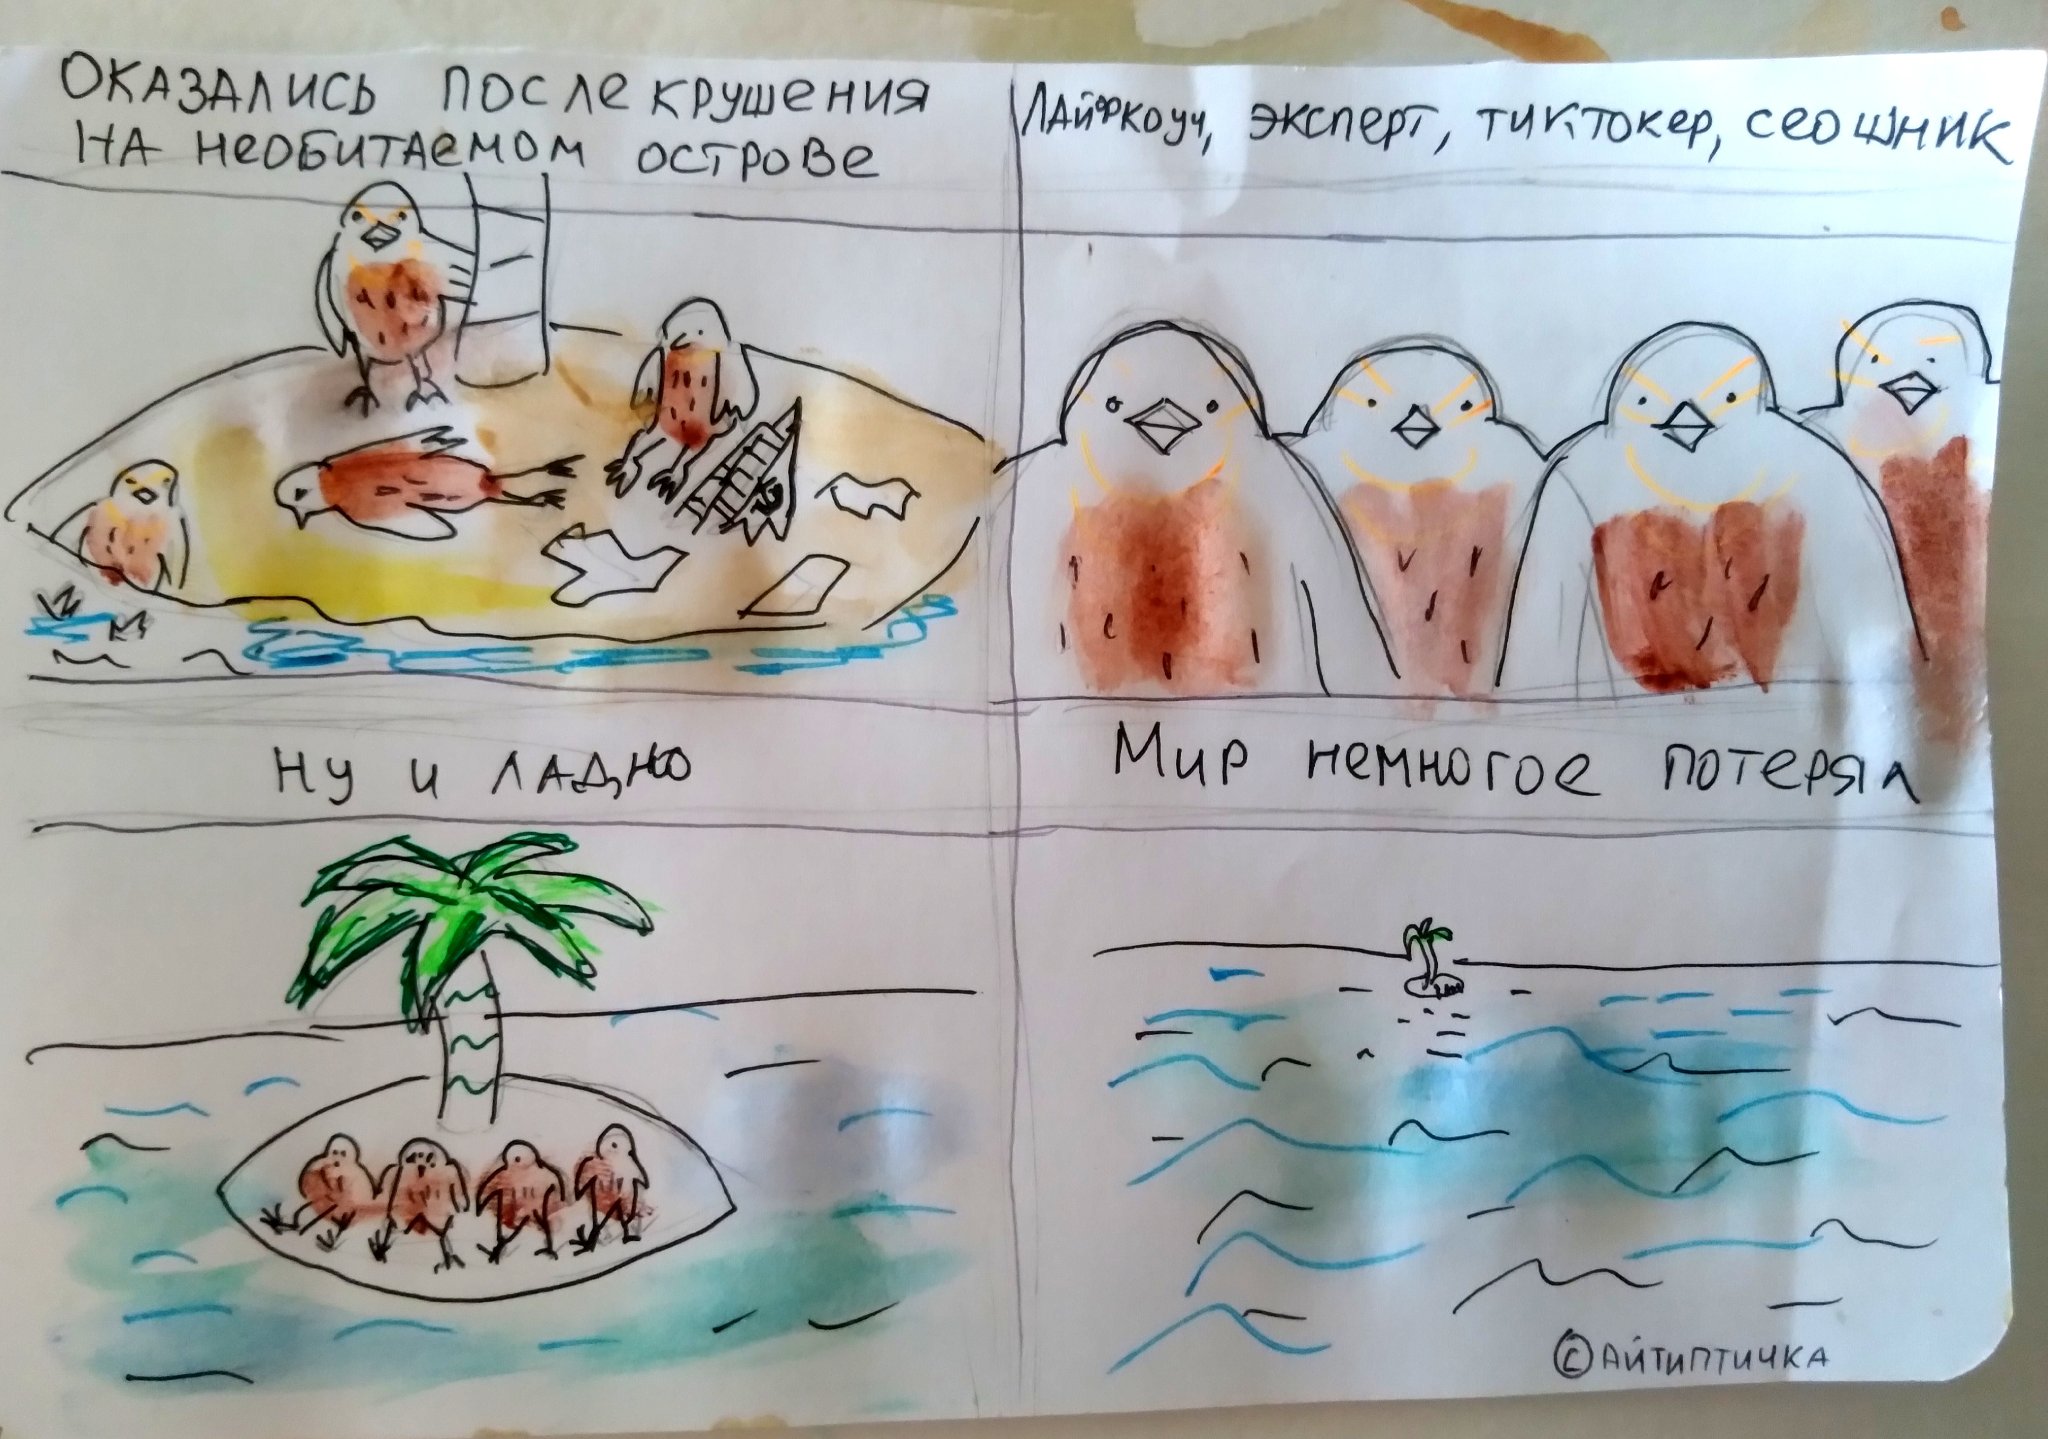 ОКАЗАЛИСЬ ПОСЛЕ КРУШЕНИЯ
НА НЕОБИТАЕМОМ ОСТРОВЕ
ЛАЙФКОУЧ, ЭКСПЕРТ, ТИКТОКЕР, СЕОШНИК
НУ И ЛАДНО
Мир немногое потерял
©АЙТИПТИЧКА